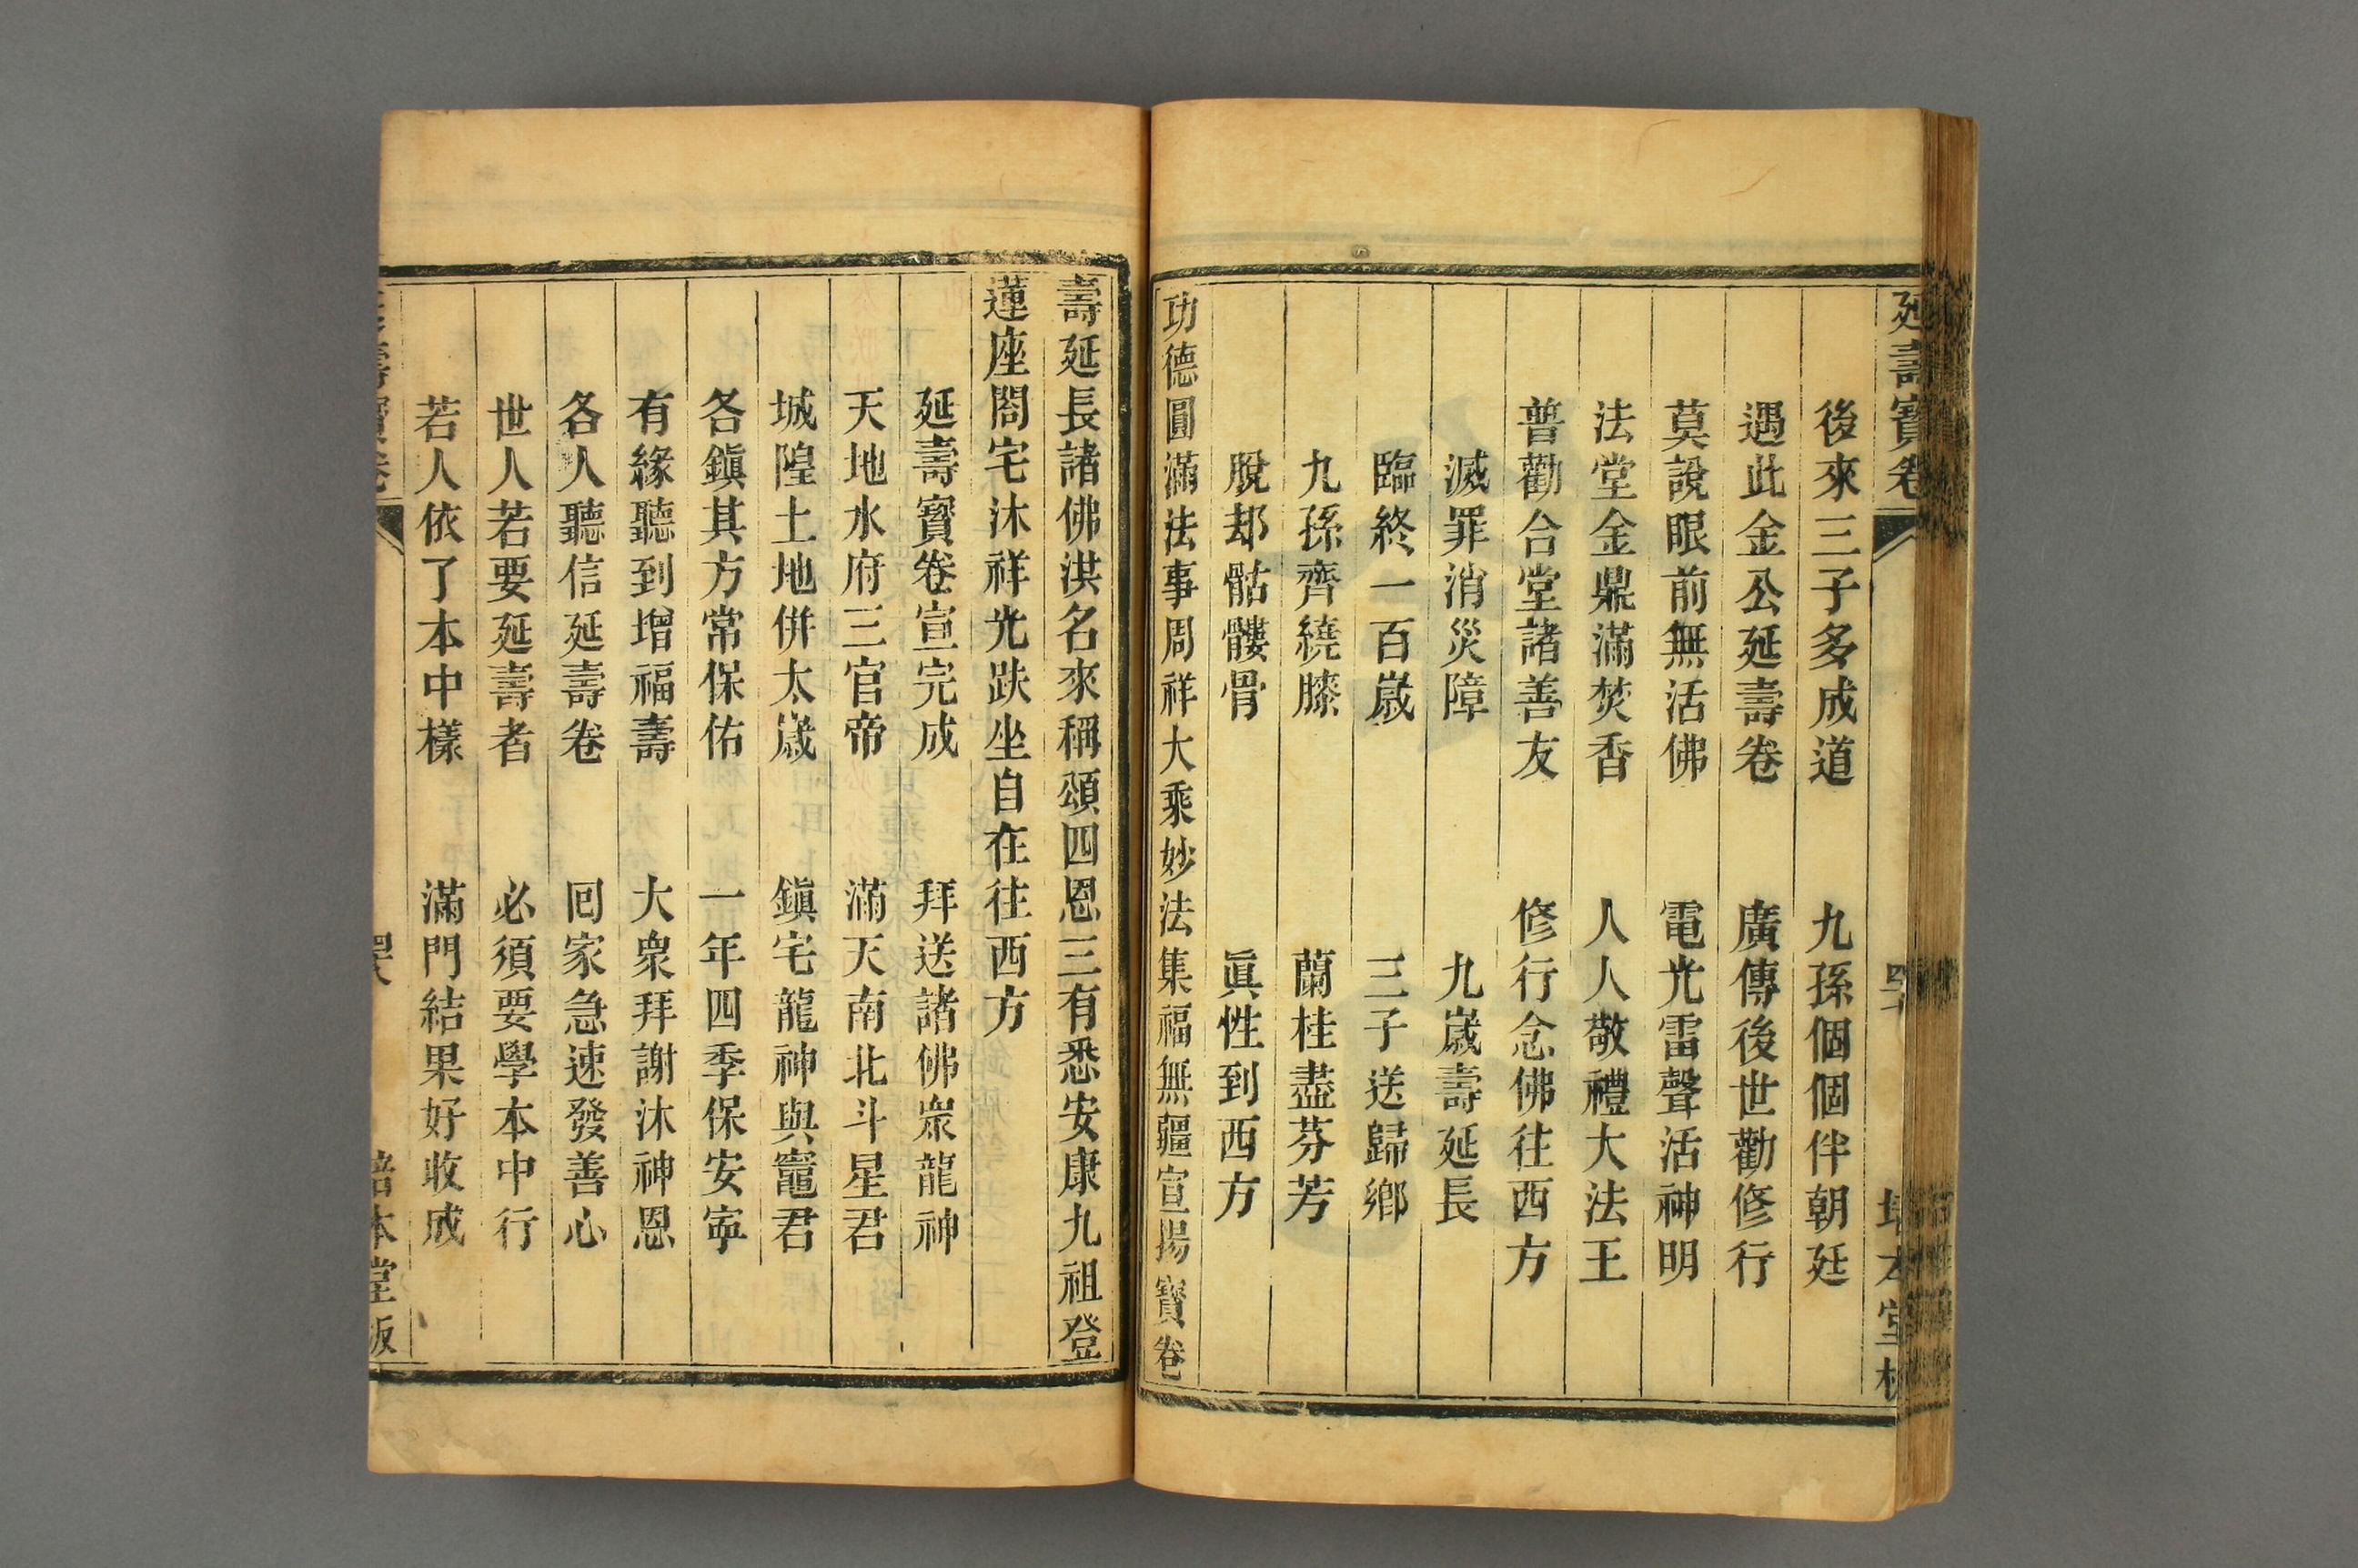 延壽寶卷
後來三子多成道 九孫個個伴朝廷
遇此金公延壽卷 廣傳後世勸修行
莫說眼前無活佛 電光雷聲活神明
法堂金鼎滿焚香 人人敬禮大法王
普勸合堂諸善友 修行念佛往西方
滅罪消災障 九歲壽延長
臨終一百歲 三子送歸鄉
九孫齊繞膝 蘭桂盡芬芳
脫却骷髏骨 眞性到西方
功德圓滿法事周祥大乘妙法集福無疆宣揚寶卷
壽延長諸佛洪名來稱頌四恩三有悉安康九祖登
蓮座閤宅沐祥光趺坐自在往西方
延壽寶卷宣完成 拜送諸佛衆龍神
天地水府三官帝 滿天南北斗星君
城隍土地併太歲 鎭宅龍神與竈君
各鎭其方常保佑 一年四季保安寧
有緣聽到增福壽 大衆拜謝沐神恩
各人聽信延壽卷 回家急速發善心
世人若要延壽者 必須要學本中行
若人依了本中樣 滿門結果好收成
本堂版